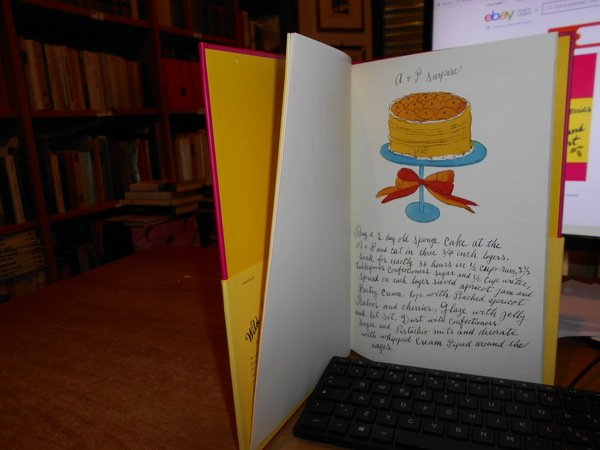 A + P. Surprise
Buy a 2 day old sponge cake at the
A + P and cut in three 3/4 inch layers.
soak for exactly 36 hours in 1/2 cup rum, 2 1/2
tablespoons confectioners sugar and 1/2 cup water,
spread on each layer sieved apricot jam and
Pastry Cream. top with Poached apricot
halves and cherries. Glaze with jelly
and let set. Dust with Confectioners
Sugar and Pistachio nuts and decorate
with whipped Cream Piped around the
edges.
ebay
Wild